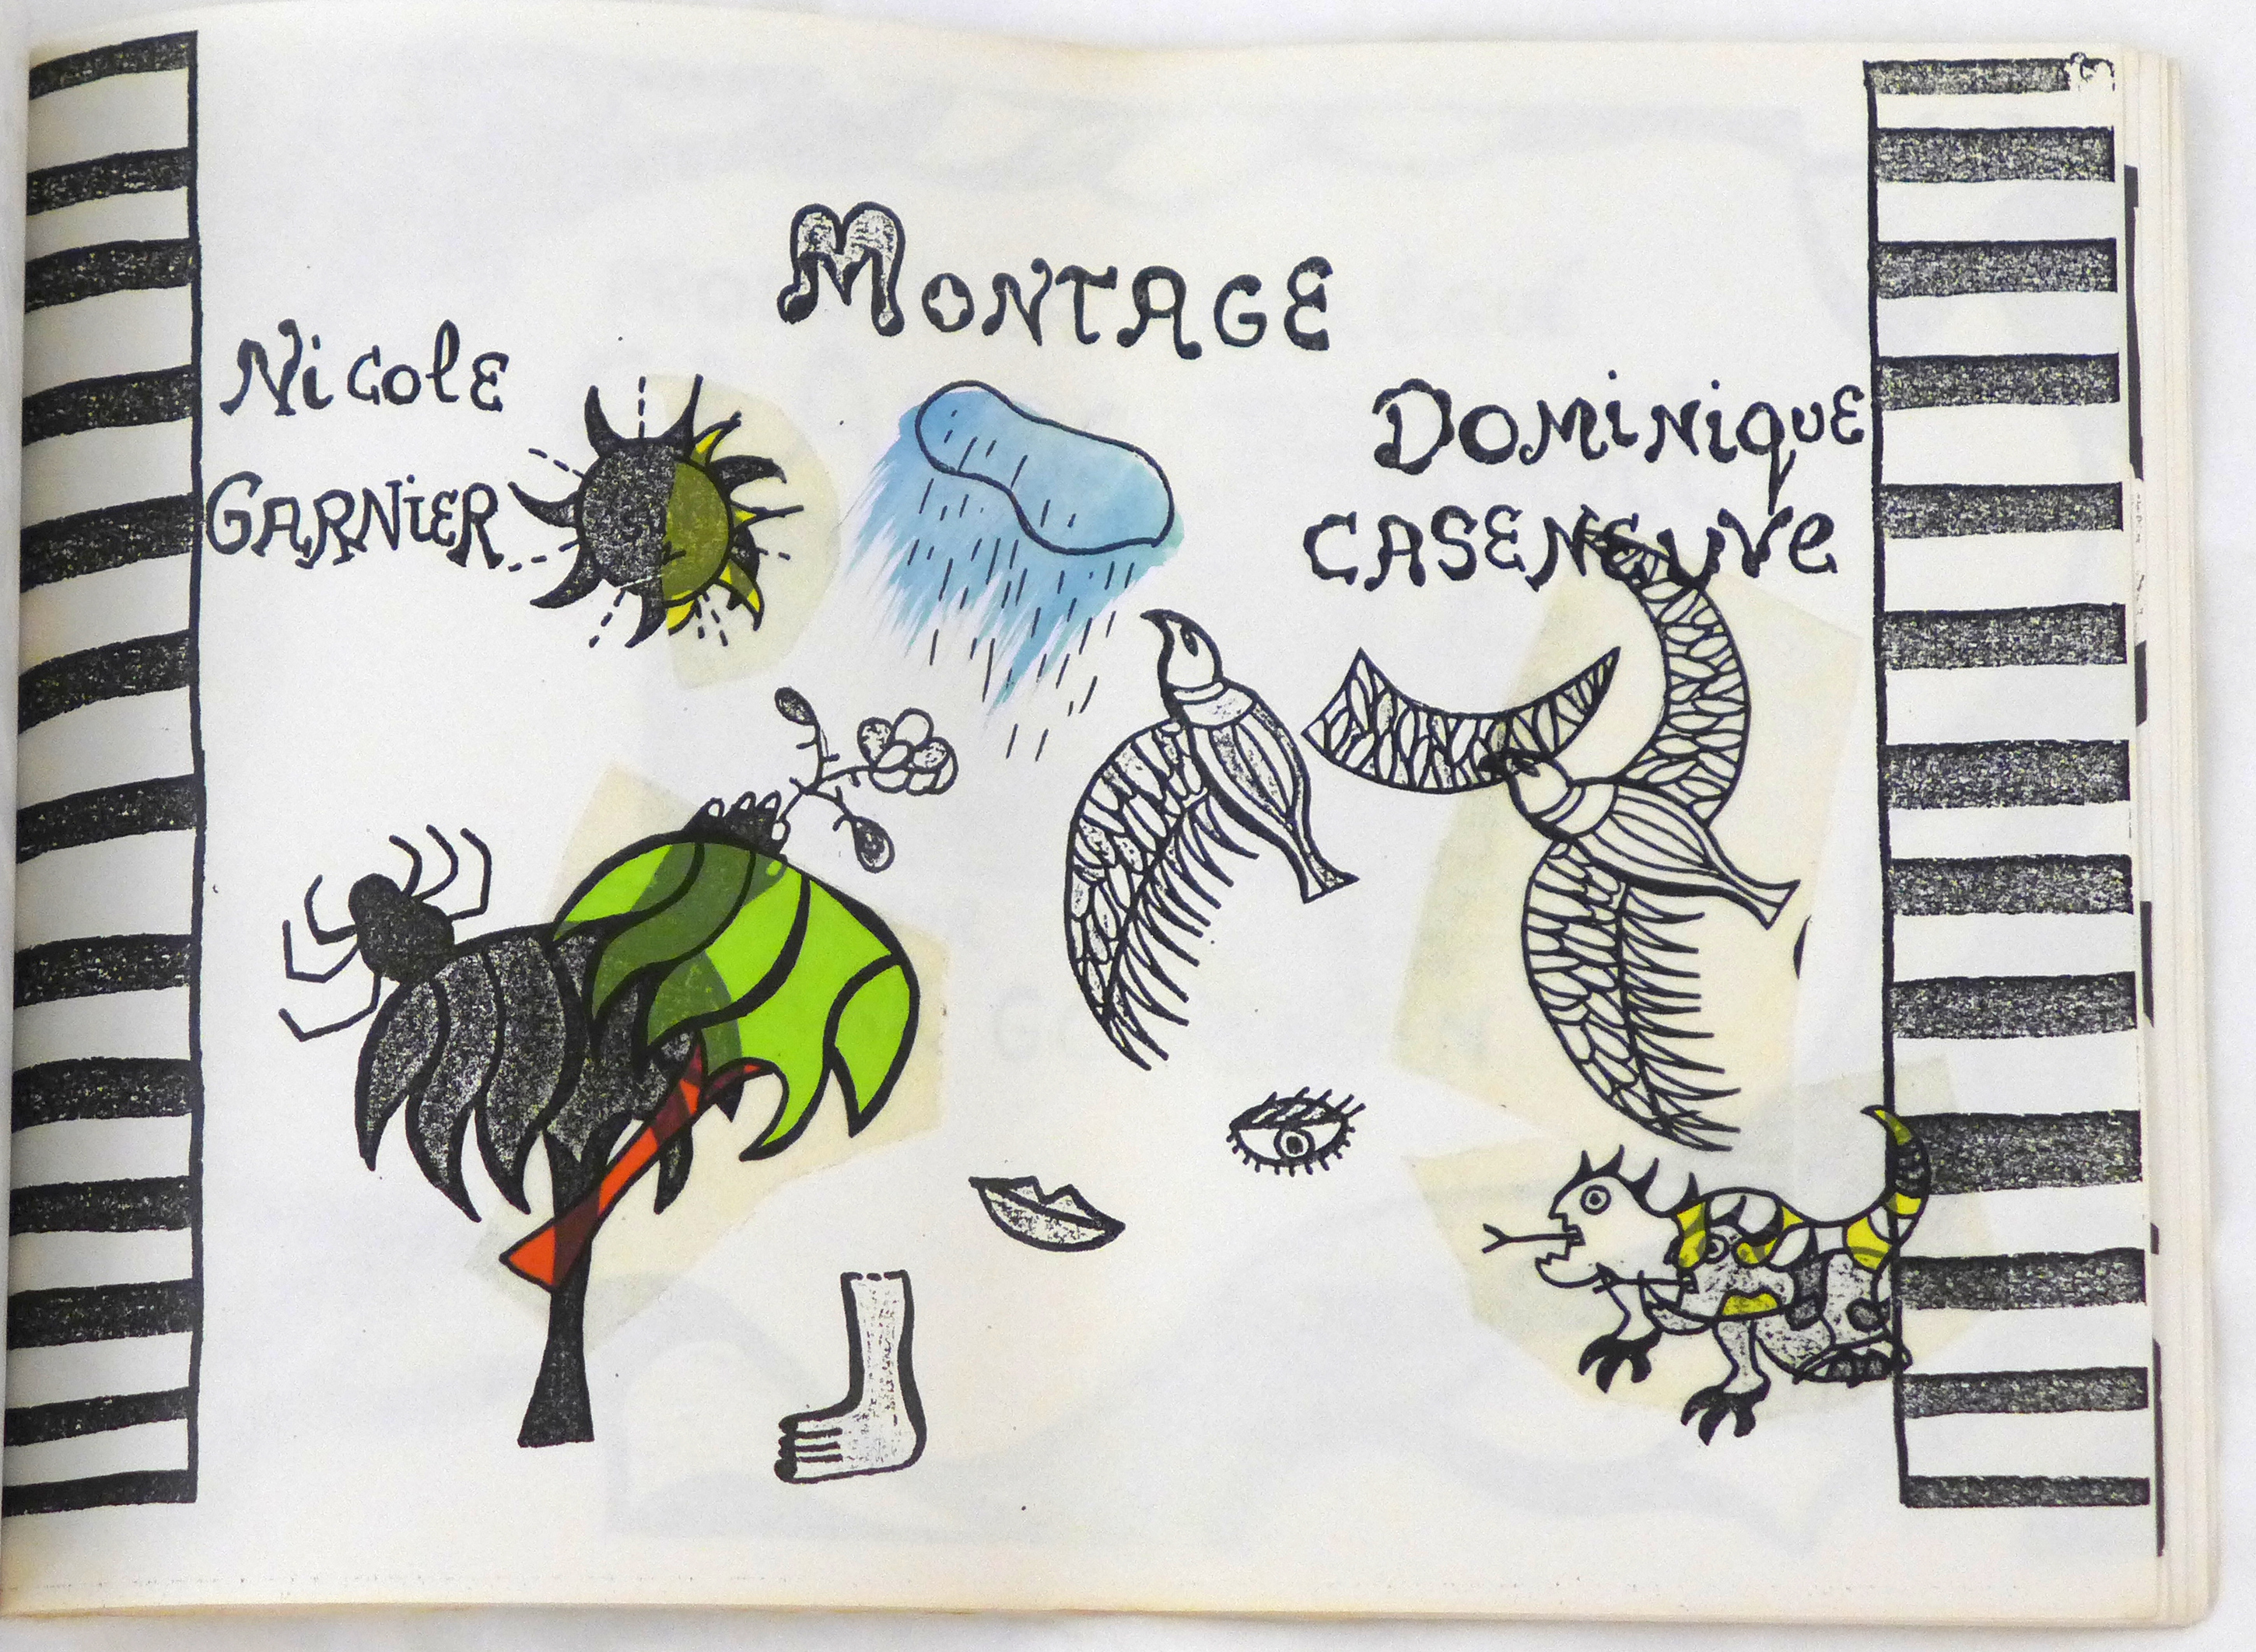 MONTAGE
Nicole
GARNiER
DOMiNiQUE
CASENEUVE